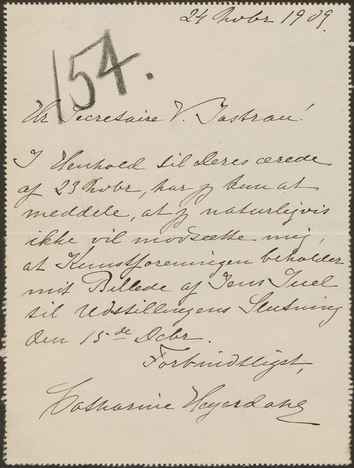 24 Novbr 1909.
154.
Hr Secretaire V. Jastrau!
I Henhold til Deres ærede
af 23 Novbr, har jeg kun at
meddele, at jeg naturligvis
ikke vil modsætte mig,
at Kunstforeningen beholder
mit Billede af Jens Juel
til Udstillingens Slutning
den 15de Dcbr.
Forbindtligst,
Catharine Heyerdahl